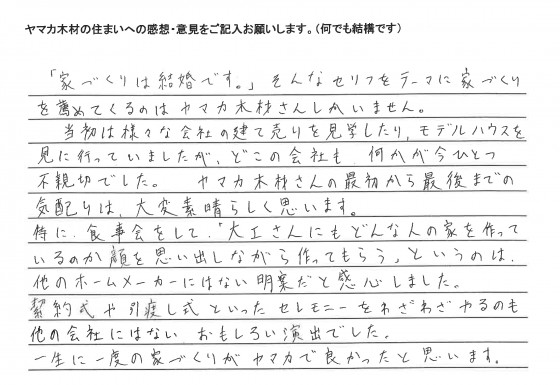 ヤマカ木材の住まいへの感想・意見をご記入お願いします。(何でも結構です)
「家づくりは結婚です。」そんなセリフをテーマに家づくり
を薦めてくるのはヤマカ木材さんしかいません。
当初は様々な会社の建て売りを見学したり,モデルハウスを
見に行っていましたが、どこの会社も、何かが今ひとつ
不親切でした。 ヤマカ木材さんの最初から最後までの
気配りは、大変素晴らしく思います。
特に、食事会をして、「大工さんにもどんな人の家を作って
いるのか顔を思い出しながら作ってもらう。」というのは、
他のホームメーカーにはない明案だと感心しました。
契約式や引渡し式といったセレモニーをわざわざやるのも
他の会社にはない おもしろい演出でした。
一生に一度の家づくりがヤマカで良かったと思います。